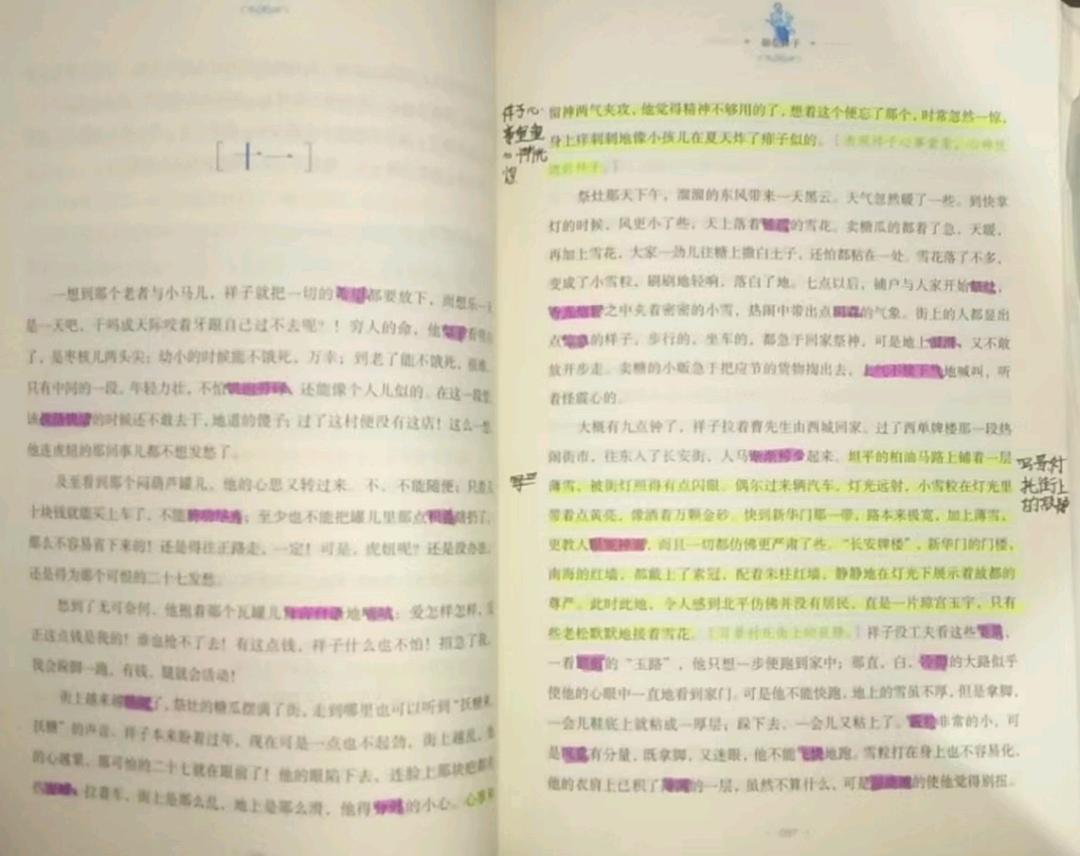 [十一]
一想到那个老者与小马儿，祥子就把一切的都要放下，而想乐一天
是一天吧，干吗成天际咬着牙跟自己过不去呢？！穷人的命，他看明白
了，是枣核儿两头尖：幼小的时候能不饿死，万幸；到老了能不饿死，很难。
只有中间的一段，年轻力壮，不怕，还能像个人儿似的。在这一段里，
该的时候还不敢去干，地道的傻子；过了这村便没有这店！这么一想，
他连虎妞的那回事儿都不想发愁了。
及至看到那个闷葫芦罐儿，他的心思又转过来。不，不能随便；只差几
十块钱就能买上车了，不能；至少也不能把罐儿里那点扔了，
那么不容易省下来的！还是得往正路走，一定！可是，虎妞呢？还是没办法，
还是得为那个可恨的二十七发愁。
愁到了无可奈何，他抱着那个瓦罐儿地：爱怎样怎样，反
正这点钱是我的！谁也抢不了去！有这点钱，祥子什么也不怕！招急了我，
我会跺脚一跑，有钱，腿就会活动！
街上越来越了，祭灶的糖瓜摆满了街，走到哪里也可以听到“扷糖来，
扷糖”的声音。祥子本来盼着过年，现在可是一点也不起劲，街上越乱，他
的心越紧，那可怕的二十七就在眼前了！他的眼陷下去，连脸上那块疤都有
些。拉着车，街上是那么乱，地上是那么滑，他得的小心。心事和
骆驼祥子
留神两气夹攻，他觉得精神不够用的了，想着这个便忘了那个，时常忽然一惊，
身上痒刺刺地像小孩儿在夏天炸了痱子似的。[表现祥子心事重重、心神恍
惚的样子。]
祥子心
事重重
心神恍
惚
祭灶那天下午，溜溜的东风带来一天黑云。天气忽然暖了一些。到快掌
灯的时候，风更小了些，天上落着的雪花。卖糖瓜的都着了急，天暖，
再加上雪花，大家一劲儿往糖上撒白土子，还怕都粘在一处。雪花落了不多，
变成了小雪粒，刷刷地轻响，落白了地。七点以后，铺户与人家开始，
之中夹着密密的小雪，热闹中带出点的气象。街上的人都显出
点的样子，步行的，坐车的，都急于回家祭神，可是地上，又不敢
放开步走。卖糖的小贩急于把应节的货物揈出去，上气不接下气地喊叫，听
着怪震心的。
大概有九点钟了，祥子拉着曹先生由西城回家。过了西单牌楼那一段热
闹街市，往东入了长安街，人马起来。坦平的柏油马路上铺着一层
薄雪，被街灯照得有点闪眼。偶尔过来辆汽车，灯光远射，小雪粒在灯光里
带着点黄亮，像洒着万颗金砂。快到新华门那一带，路本来极宽，加上薄雪，
更教人，而且一切都仿佛更严肃了些。“长安牌楼”，新华门的门楼，
南海的红墙，都戴上了素冠，配着朱柱红墙，静静地在灯光下展示着故都的
尊严。此时此地，令人感到北平仿佛并没有居民，直是一片琼宫玉宇，只有
些老松默默地接着雪花。祥子没工夫看这些，
一看的“玉路”，他只想一步便跑到家中；那直，白，的大路似乎
使他的心眼中一直地看到家门。可是他不能快跑，地上的雪虽不厚，但是拿脚，
一会儿鞋底上就粘成一厚层；跺下去，一会儿又粘上了。非常的小，可
是有分量，既拿脚，又迷眼，他不能地跑。雪粒打在身上也不容易化，
他的衣肩上已积了的一层，虽然不算什么，可是的使他觉得别扭。
街上